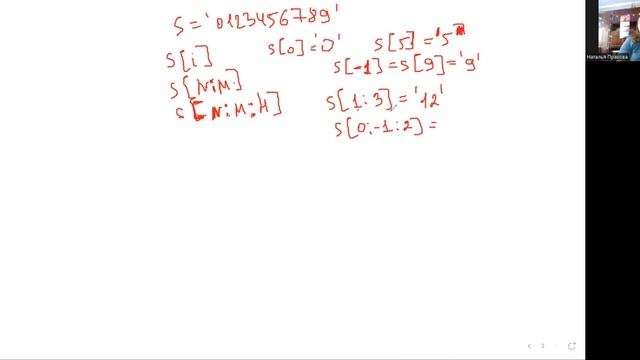 S='0123456789'
S[i] S[0]='0' S[5]='5'
S[-1]=S[9]='9'
S[N:M]
S[1:3]='12'
S[N:M:H]
S[0:-1:2]=
Наталья Пракова
3